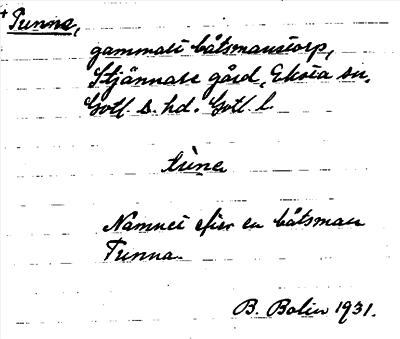 + Tunna,
gammalt båtsmanstorp,
Stjännare gård, Eksta sn.
Gotl. S. hd. Gotl. l.
tùna
Namnet efter en båtsman
Tunna.
B. Bolin 1931.